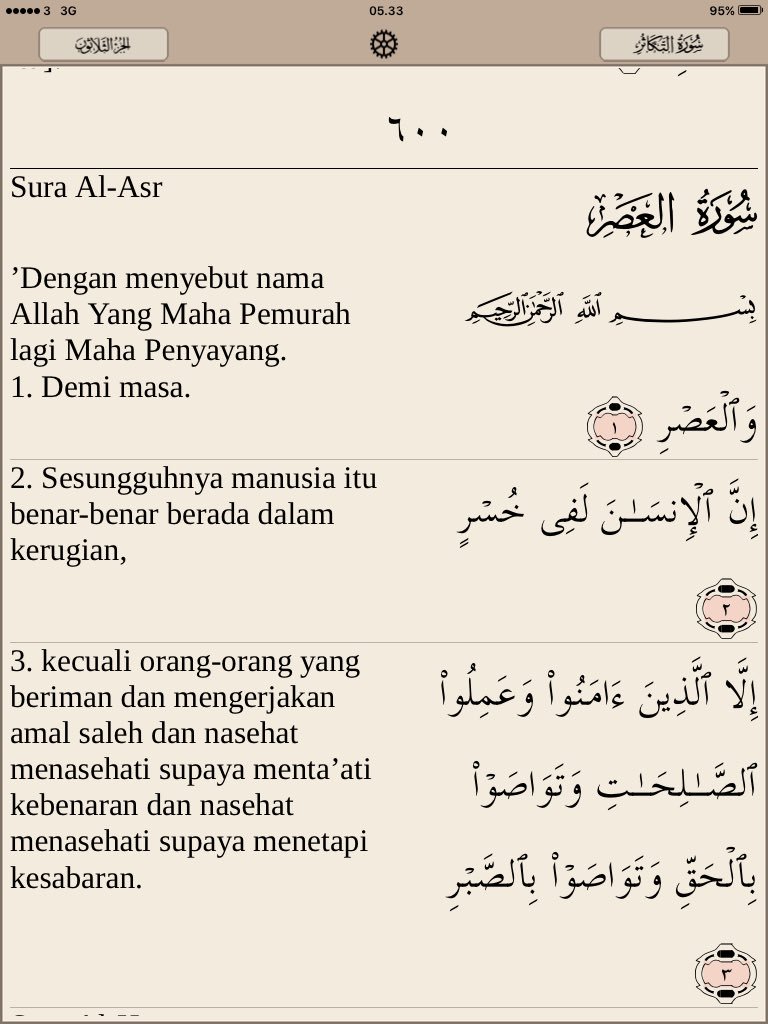 3 3G 05.33 95%
الجزء الثلاثون سورة التكاثر
٦٠٠
Sura Al-Asr
سُورَةُ العَصْرِ
’Dengan menyebut nama
Allah Yang Maha Pemurah
lagi Maha Penyayang.
بِسْمِ اللَّهِ الرَّحْمَٰنِ الرَّحِيمِ
1. Demi masa.
وَٱلْعَصْرِ ١
2. Sesungguhnya manusia itu
benar-benar berada dalam
kerugian,
إِنَّ ٱلْإِنسَـٰنَ لَفِى خُسْرٍ
٢
3. kecuali orang-orang yang
beriman dan mengerjakan
amal saleh dan nasehat
menasehati supaya menta’ati
kebenaran dan nasehat
menasehati supaya menetapi
kesabaran.
إِلَّا ٱلَّذِينَ ءَامَنُوا۟ وَعَمِلُوا۟
ٱلصَّـٰلِحَـٰتِ وَتَوَاصَوْا۟
بِٱلْحَقِّ وَتَوَاصَوْا۟ بِٱلصَّبْرِ
٣